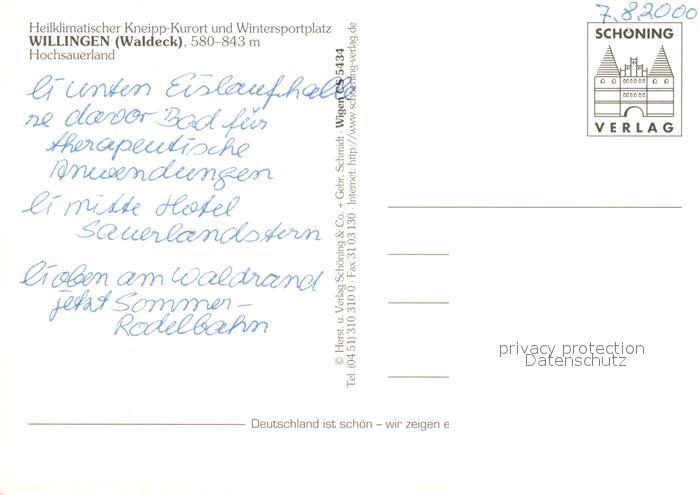 Heilklimatischer Kneipp-Kurort und Wintersportplatz
WILLINGEN (Waldeck), 580–843 m
Hochsauerland
li unten Eislaufhalle
re davor Bad für
therapeutische
Anwendungen
li mitte Hotel
Sauerlandstern
li oben am Waldrand
jetzt Sommer-
Rodelbahn
Deutschland ist schön – wir zeigen e
© Herst. u. Verlag Schöning & Co. + Gebr. Schmidt · Wigen CS 5434
Tel. (04 51) 310 310 0 · Fax 31 03 130 · Internet: http://www.schoening-verlag.de
7.8.2000
SCHÖNING
VERLAG
privacy protection
Datenschutz